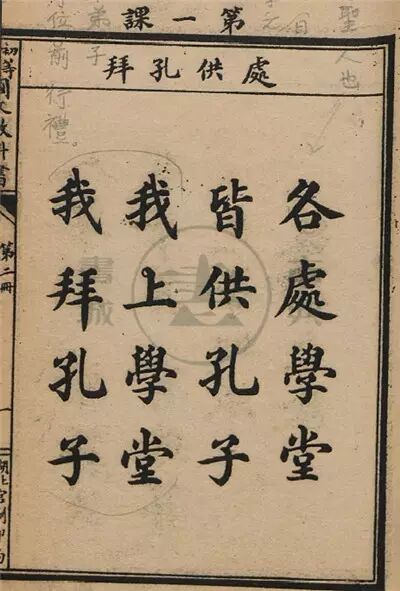 第一課
處供孔拜
各處學堂
皆供孔子
我上學堂
我拜孔子
初等國文教科書
第二冊
一
聖人也
弟子
位前行禮。